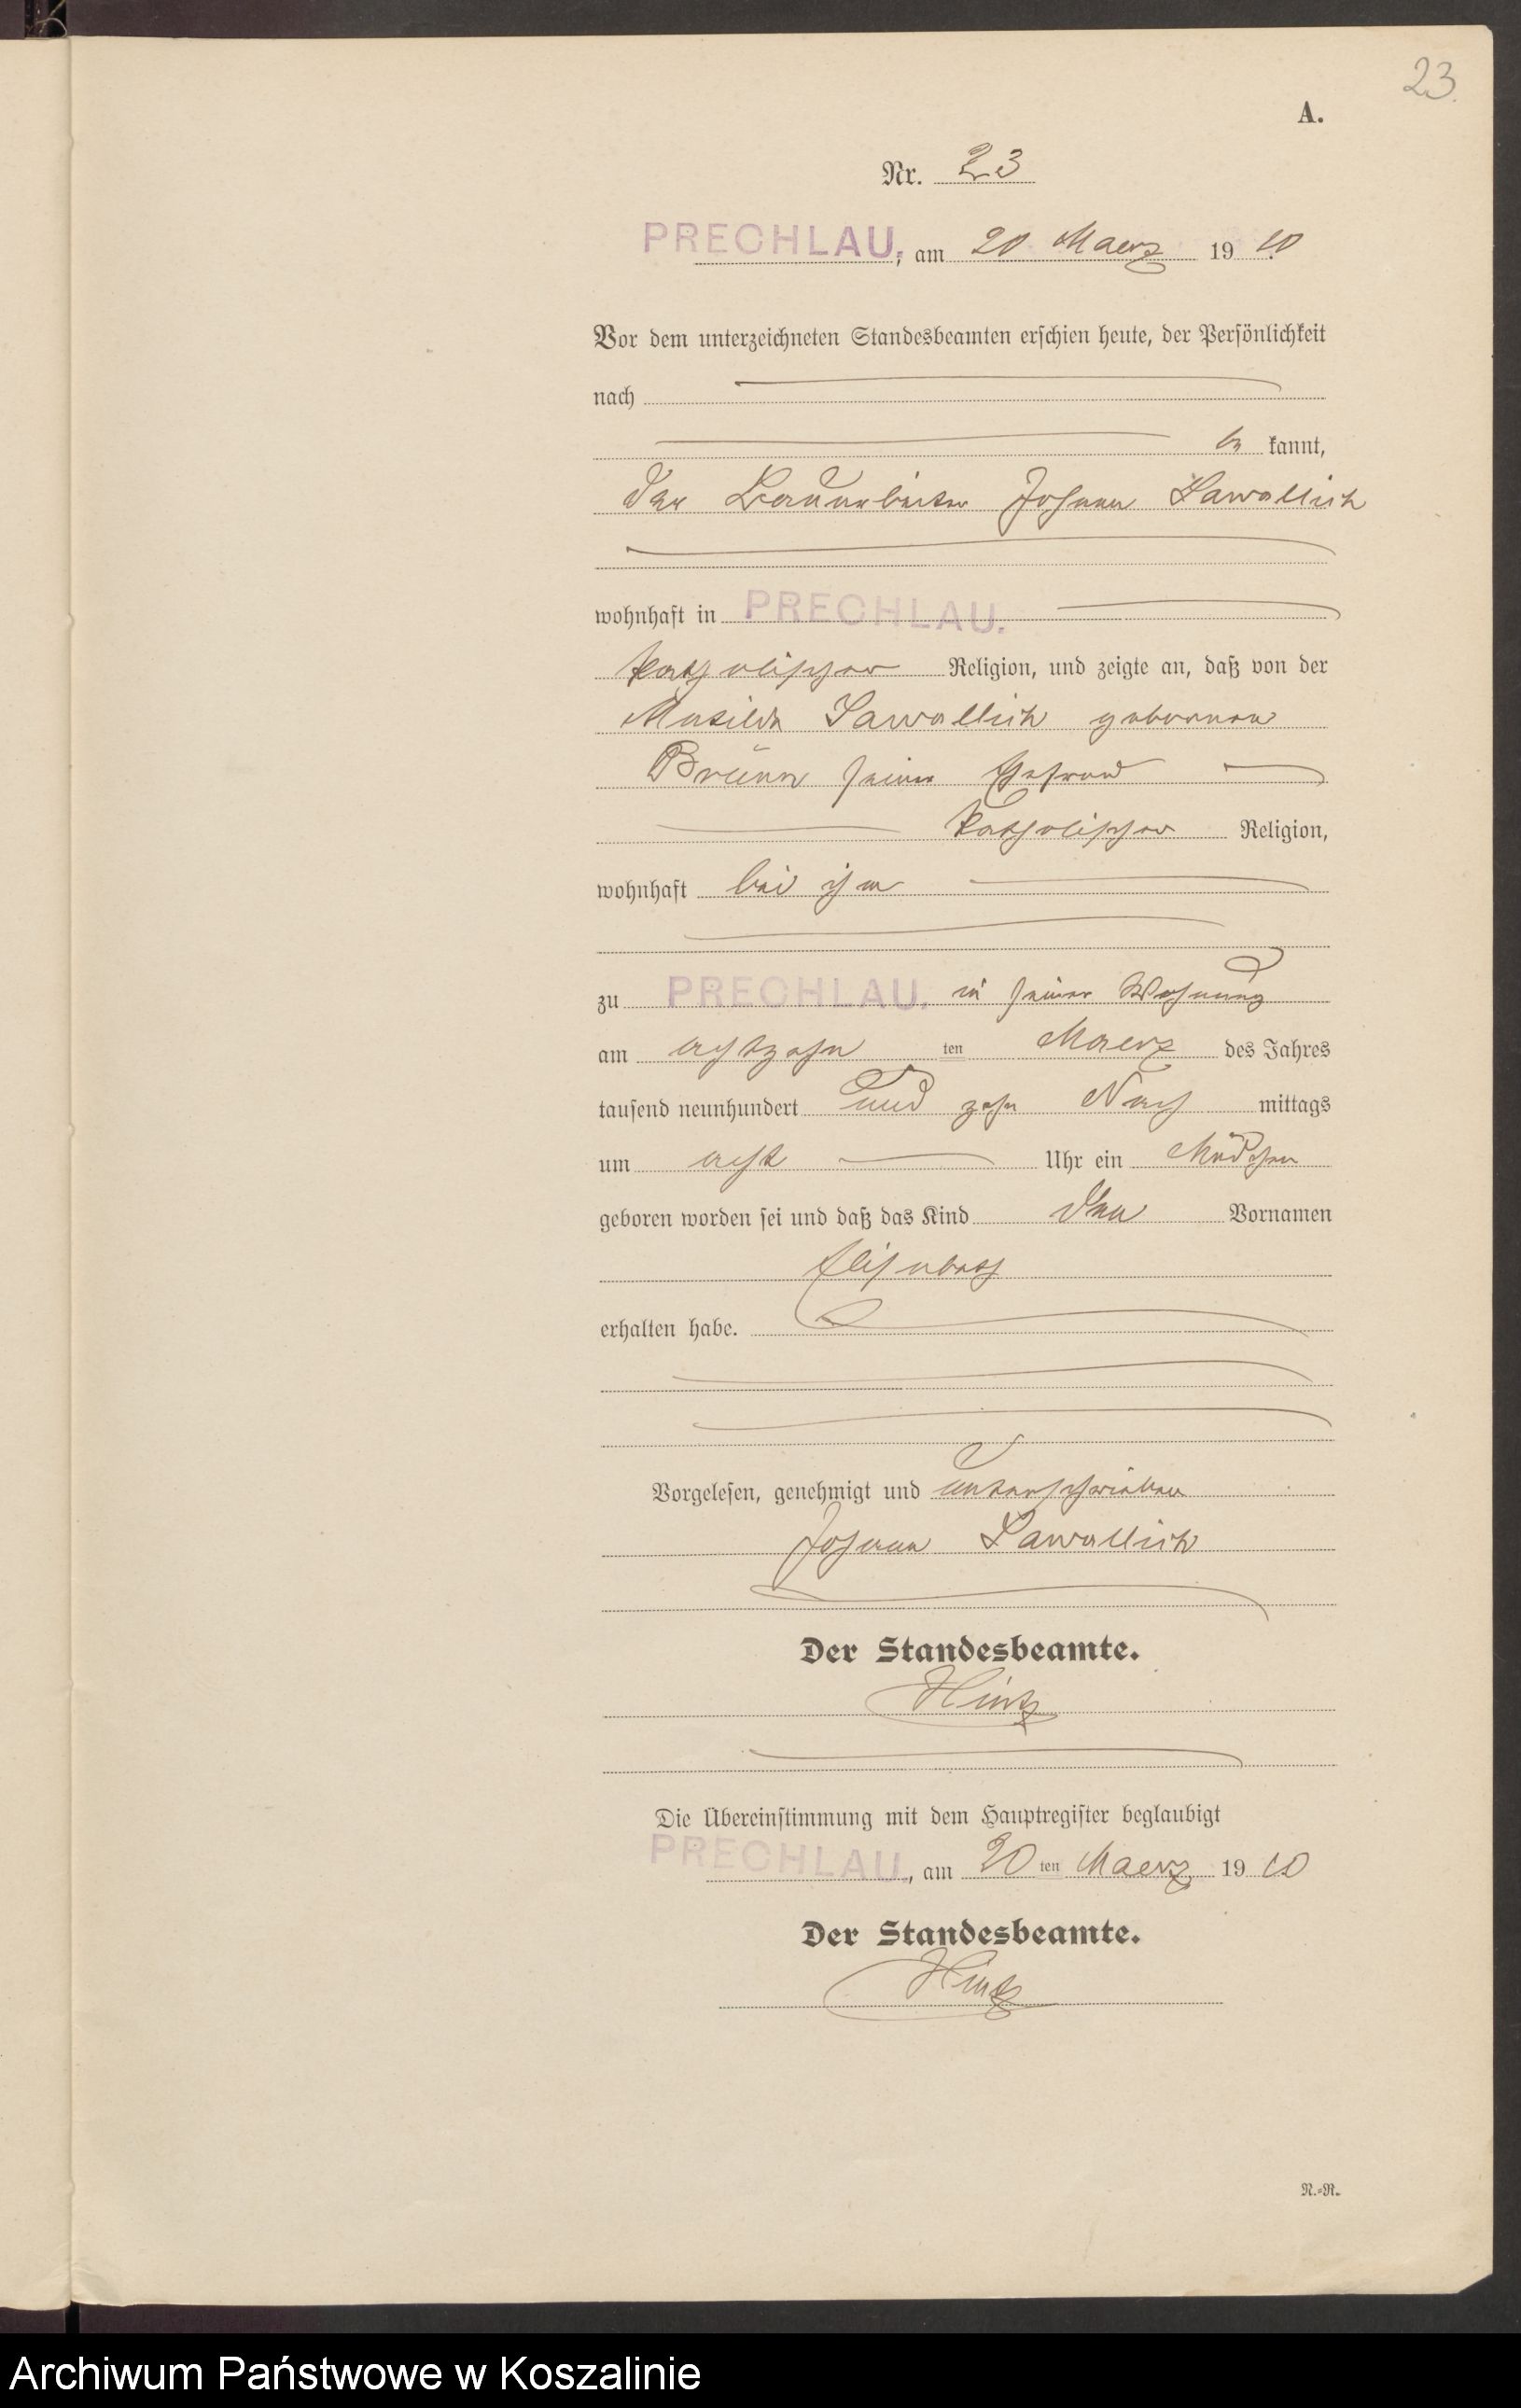 23.
A.
Nr. 23
PRECHLAU, am 20 Maerz 1910
Vor dem unterzeichneten Standesbeamten erschien heute, der Persönlichkeit
nach
be kannt,
der Bauarbeiter Johann Sawallich
wohnhaft in PRECHLAU.
katholischer Religion, und zeigte an, daß von der
Matilda Sawallich geborenen
Brünn seiner Ehefrau
katholischer Religion,
wohnhaft bei ihm
zu PRECHLAU. in seiner Wohnung
am achtzehn ten Maerz des Jahres
tausend neunhundert und zehn Nach mittags
um acht Uhr ein Mädchen
geboren worden sei und daß das Kind den Vornamen
Elisabeth
erhalten habe.
Vorgelesen, genehmigt und unterschrieben
Johann Sawallich
Der Standesbeamte.
Hintz
Die Übereinstimmung mit dem Hauptregister beglaubigt
PRECHLAU, am 20 ten Maerz 1910
Der Standesbeamte.
Hintz
N.=R.
Archiwum Państwowe w Koszalinie